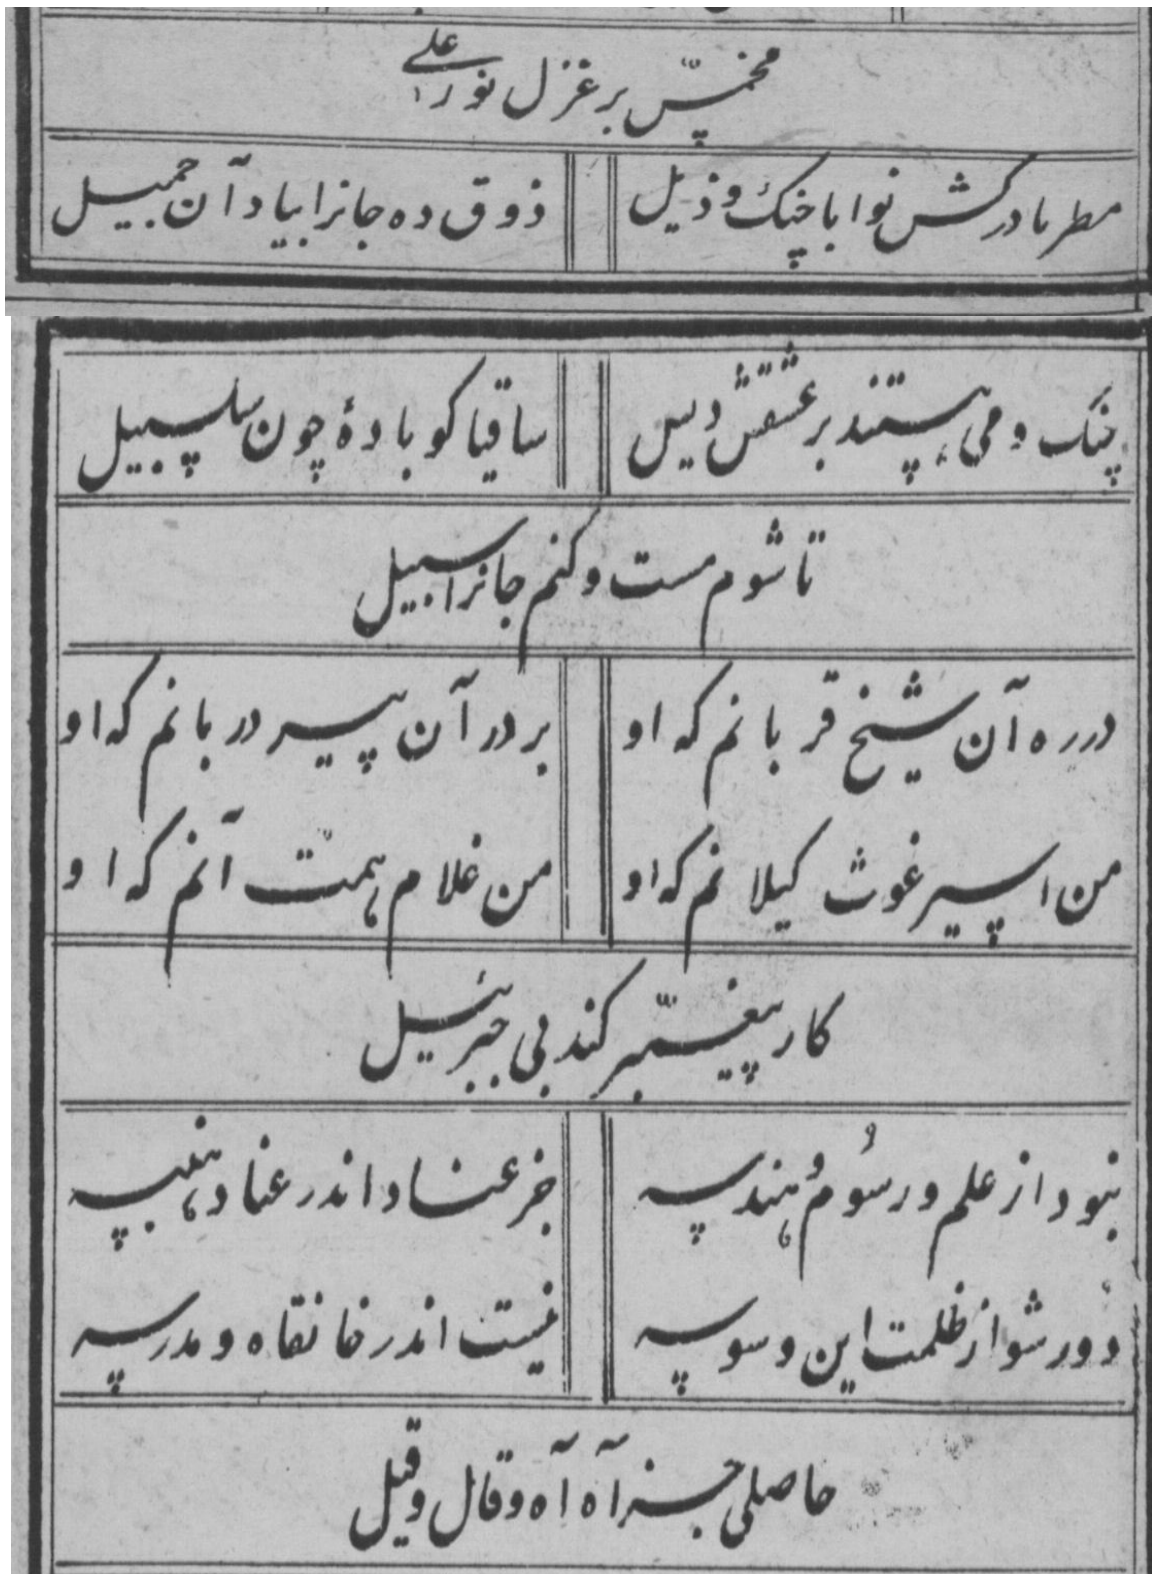 مخمّس بر غزل نور علی
مطربا درکش نوا با چنک و ذیل
ذوق ده جانرا بیاد آن جمیل
چنک و می هستند بر عشقش دلیل
ساقیا کو بادهٔ چون سلسبیل
تا شوم مست و کنم جانرا سبیل
در ره آن شیخ قربانم که او
بر در آن پیر دربانم که او
من اسیر غوث کیلانم که او
من غلام همت آنم که او
کار پیغمّبر کند بی جبرئیل
نبود از علم و رسُومُ هندسه
جز عناد اندر عناد
دور شو از ظلمت این وسوسه
نیست اندر خانقاه و مدرسه
حاصلی جز آه آه و قال و قیل